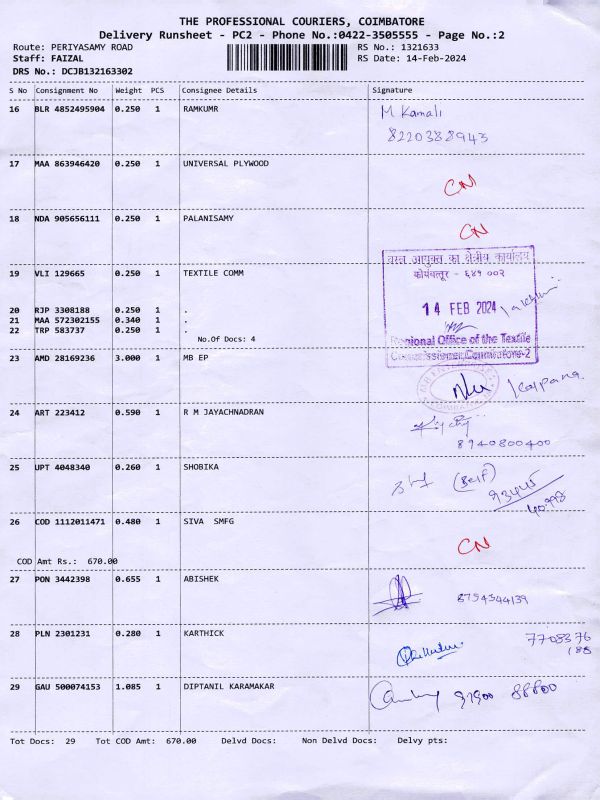 THE PROFESSIONAL COURIERS, COIMBATORE
Delivery Runsheet - PC2 - Phone No.:0422-3505555 - Page No.:2
Route: PERIYASAMY ROAD
RS No.: 1321633
Staff: FAIZAL
RS Date: 14-Feb-2024
DRS No.: DCJB132163302
S No Consignment No Weight PCS Consignee Details Signature
16 BLR 4852495904 0.250 1 RAMKUMR
M Kamali
8220388943
17 MAA 863946420 0.250 1 UNIVERSAL PLYWOOD
CN
18 NDA 905656111 0.250 1 PALANISAMY
CN
19 VLI 129665 0.250 1 TEXTILE COMM
वस्त्र आयुक्त का क्षेत्रीय कार्यालय
कोयंबत्तूर - ६४१ ००२
14 FEB 2024
Regional Office of the Textile
Commissioner, Coimbatore-2
20 RJP 3308188 0.250 1 .
21 MAA 572302155 0.340 1 .
22 TRP 583737 0.250 1 .
No.Of Docs: 4
23 AMD 28169236 3.000 1 MB EP
Kalpana
24 ART 223412 0.590 1 R M JAYACHNADRAN
8940800400
25 UPT 4048340 0.260 1 SHOBIKA
(Self)
26 COD 1112011471 0.480 1 SIVA SMFG
CN
COD Amt Rs.: 670.00
27 PON 3442398 0.655 1 ABISHEK
8754544139
28 PLN 2301231 0.280 1 KARTHICK
7708376
188
29 GAU 500074153 1.085 1 DIPTANIL KARAMAKAR
97900 88800
Tot Docs: 29 Tot COD Amt: 670.00 Delvd Docs: Non Delvd Docs: Delvy pts: